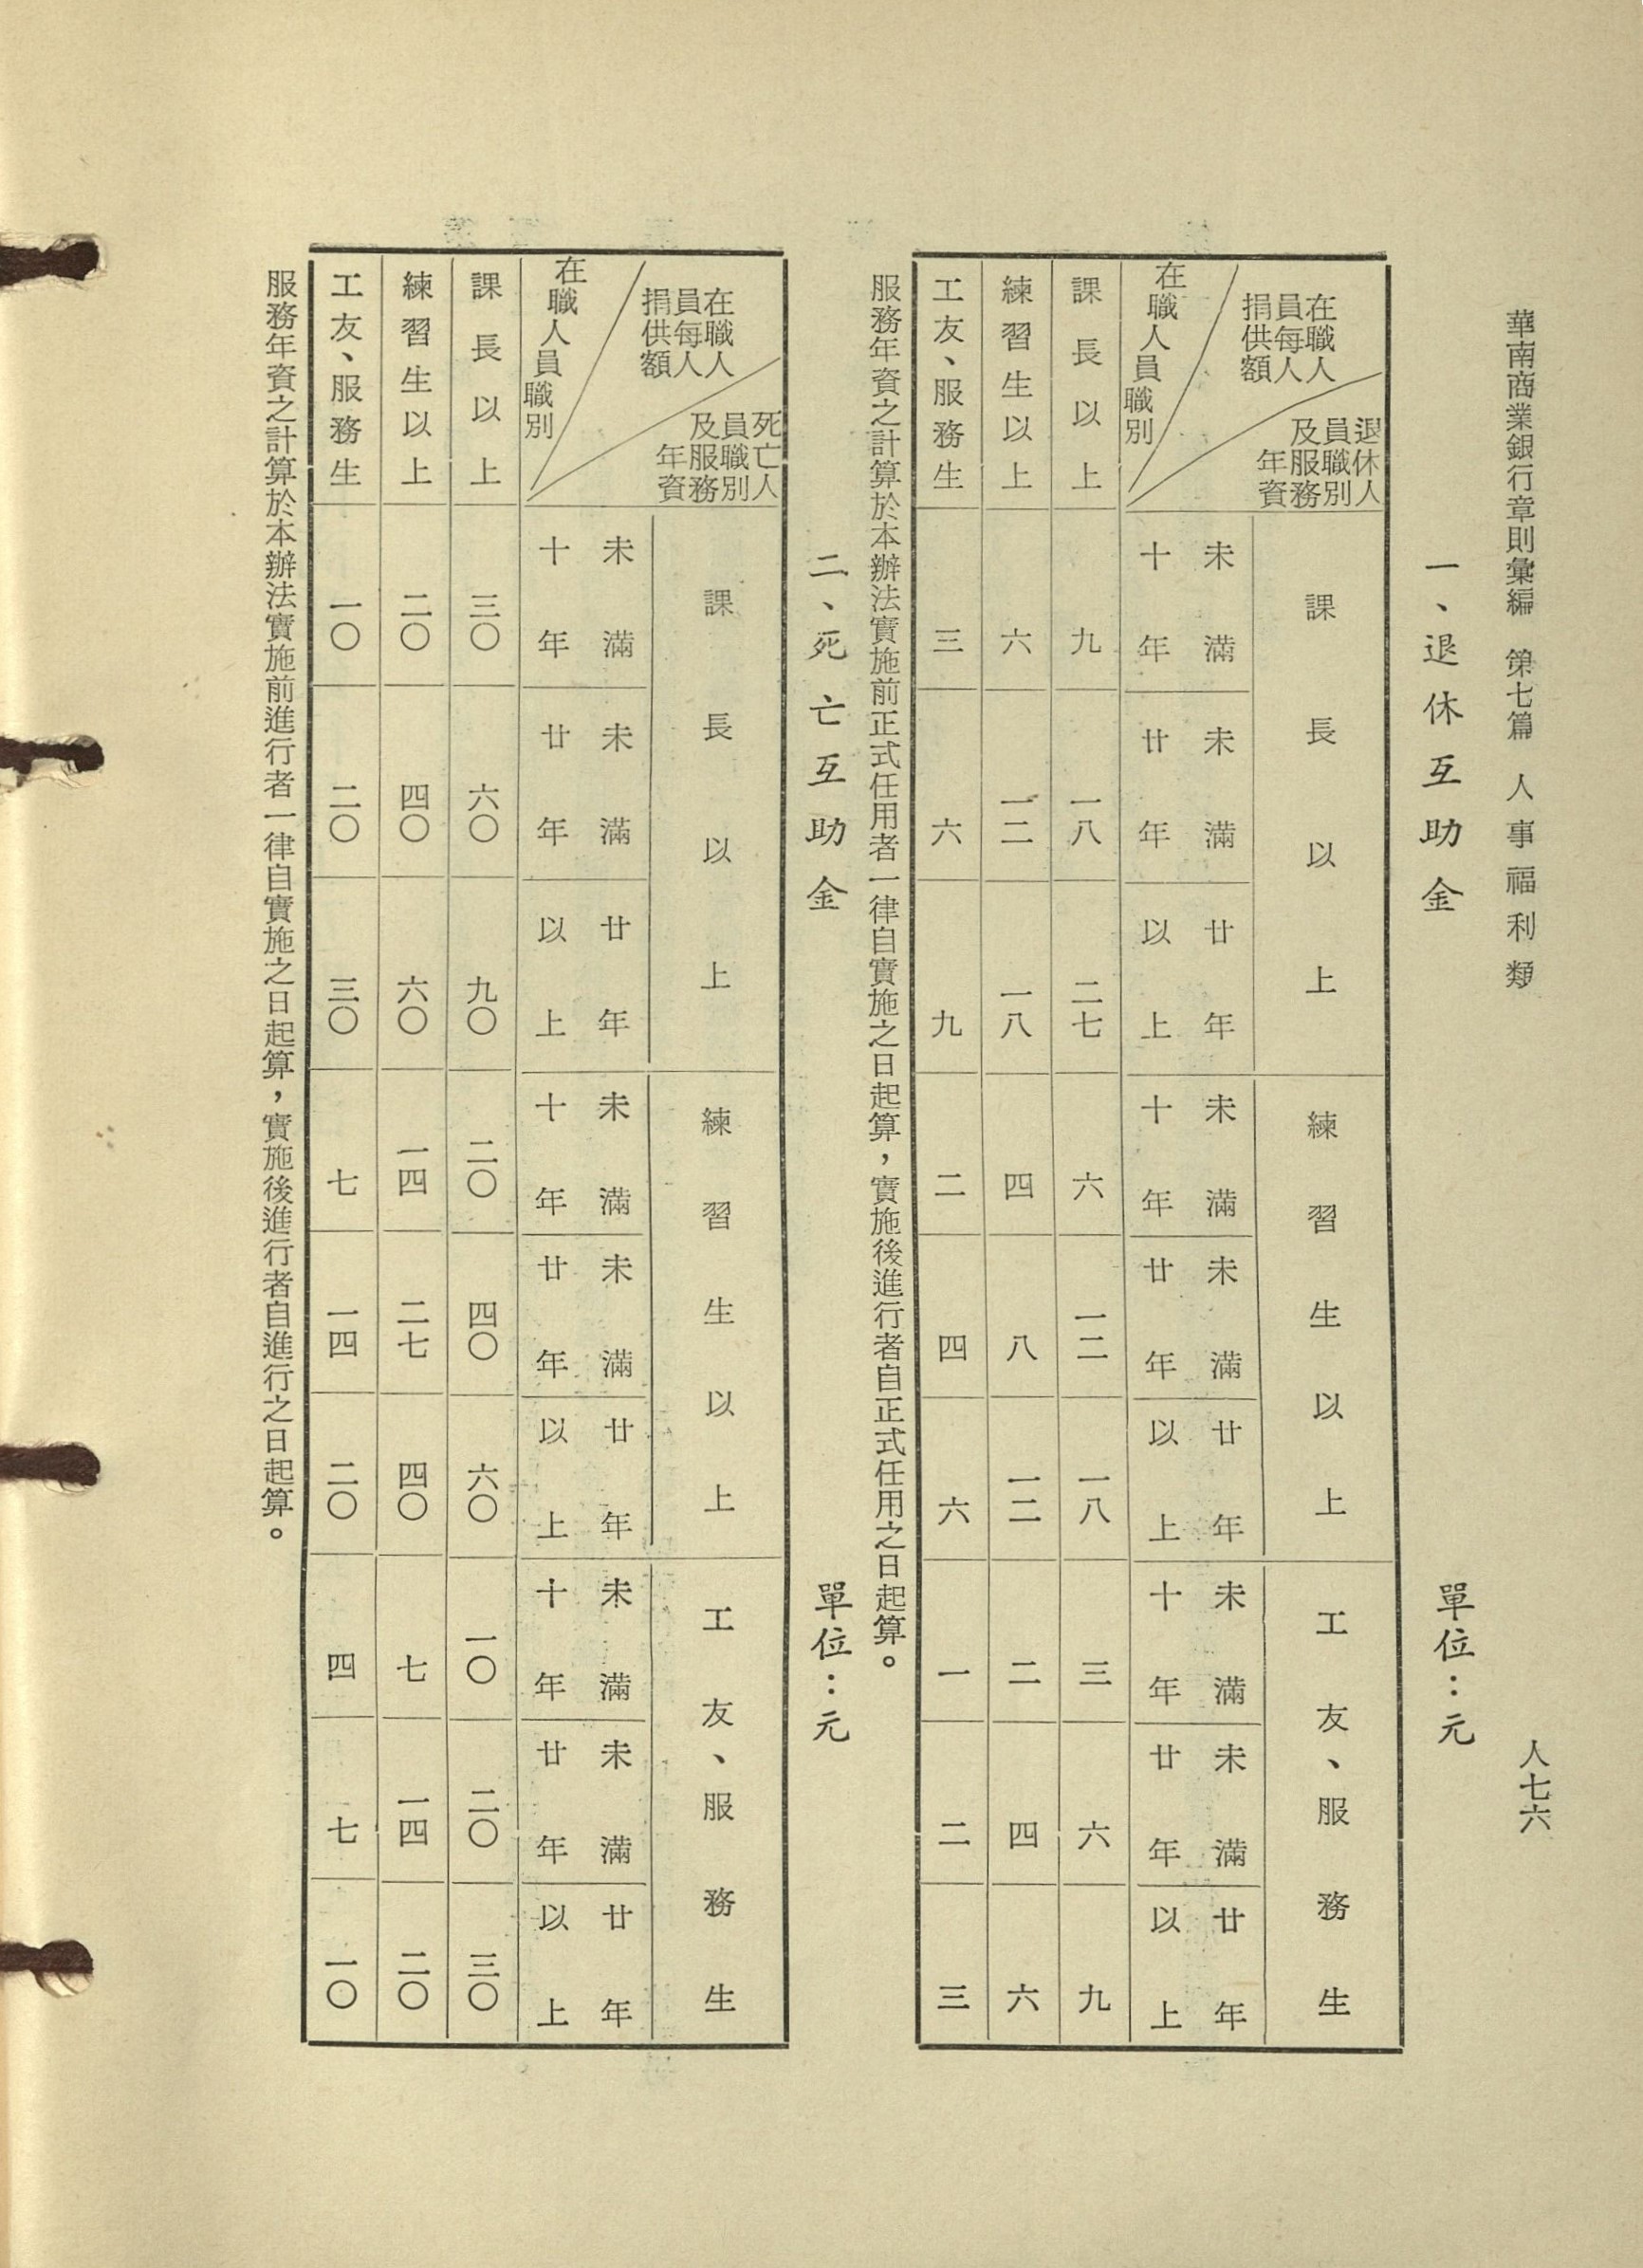 華南商業銀行章則彙編　第七篇　人事福利類
人七六
一、退休互助金
單位：元
退休人員職別及服務年資
在職人員每人捐供額
在職人員職別
課長以上
練習生以上
工友、服務生
未滿十年
未滿廿年
廿年以上
未滿十年
未滿廿年
廿年以上
未滿十年
未滿廿年
廿年以上
課長以上　九　一八　二七　六　一二　一八　三　六　九
練習生以上　六　一二　一八　四　八　一二　二　四　六
工友、服務生　三　六　九　二　四　六　一　二　三
服務年資之計算於本辦法實施前正式任用者一律自實施之日起算，實施後進行者自正式任用之日起算。
二、死亡互助金
單位：元
死亡人員職別及服務年資
在職人員每人捐供額
在職人員職別
課長以上
練習生以上
工友、服務生
未滿十年
未滿廿年
廿年以上
未滿十年
未滿廿年
廿年以上
未滿十年
未滿廿年
廿年以上
課長以上　三〇　六〇　九〇　二〇　四〇　六〇　一〇　二〇　三〇
練習生以上　二〇　四〇　六〇　一四　二七　四〇　七　一四　二〇
工友、服務生　一〇　二〇　三〇　七　一四　二〇　四　七　一〇
服務年資之計算於本辦法實施前進行者一律自實施之日起算，實施後進行者自進行之日起算。